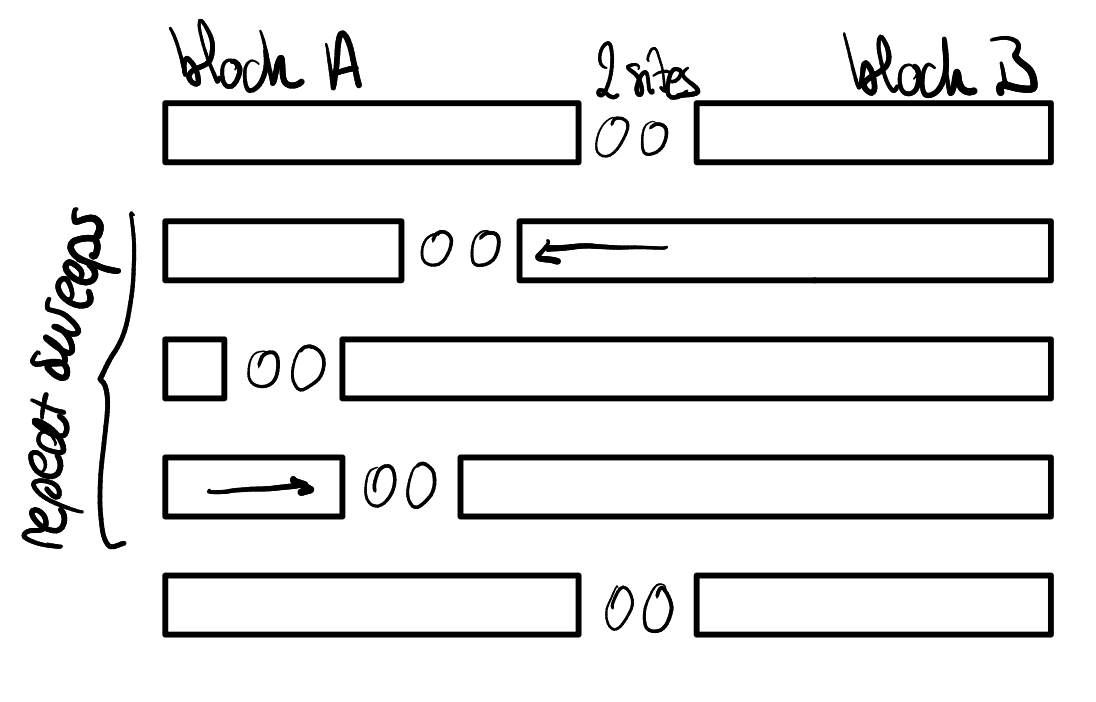 block A
2 sites
block B
repeat sweeps